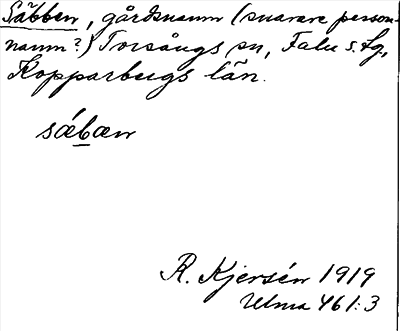 Säbben, gårdsnamn (snarare person-
namn?) Torsångs sn, Falu s. tg,
Kopparbergs län.
sábæn
R. Kjersén 1919
Ulma 461:3